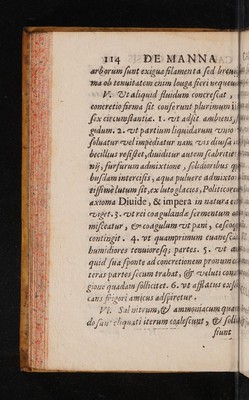 114 DE MANNA
arborum sunt exigua filamenta sed breui
ma ob tenuitatem enim longa fieri nequeunt
V. Vt aliquid fluidum concrescat,
concretio firma sit conferunt plurimum
sex circunstantiæ. 1. vt adsit ambiens
gidum. 2. vt partium liquidarum vnio
soluatur vel impediatur nam vis diuisa
becillius resistet, diuiditur autem fabritie
nij, fursurum admixtione, solidoribus
busdam intercisis, aqua puluere admixto
tissimè lutum sit, ex luto glacies, Politicorum
axioma Diuide, & impera in natura et
viget. 3. vt rei coagulandæ fermentum
misceatur, & coagulum vt pani, caseoque
contingit. 4. vt quamprimum euanesc
humidiores tenuioresq; partes. 5. vt
quid sua sponte ad concretionem pronum
teras partes secum trahat, & veluti con
gione quadam sollicitet. 6. vt afflatus
cans frigori amicus adspiretur.
VI. Sal nitrum, & ammoniacum
do sunt eliquati iterum coalescunt, &
fiunt